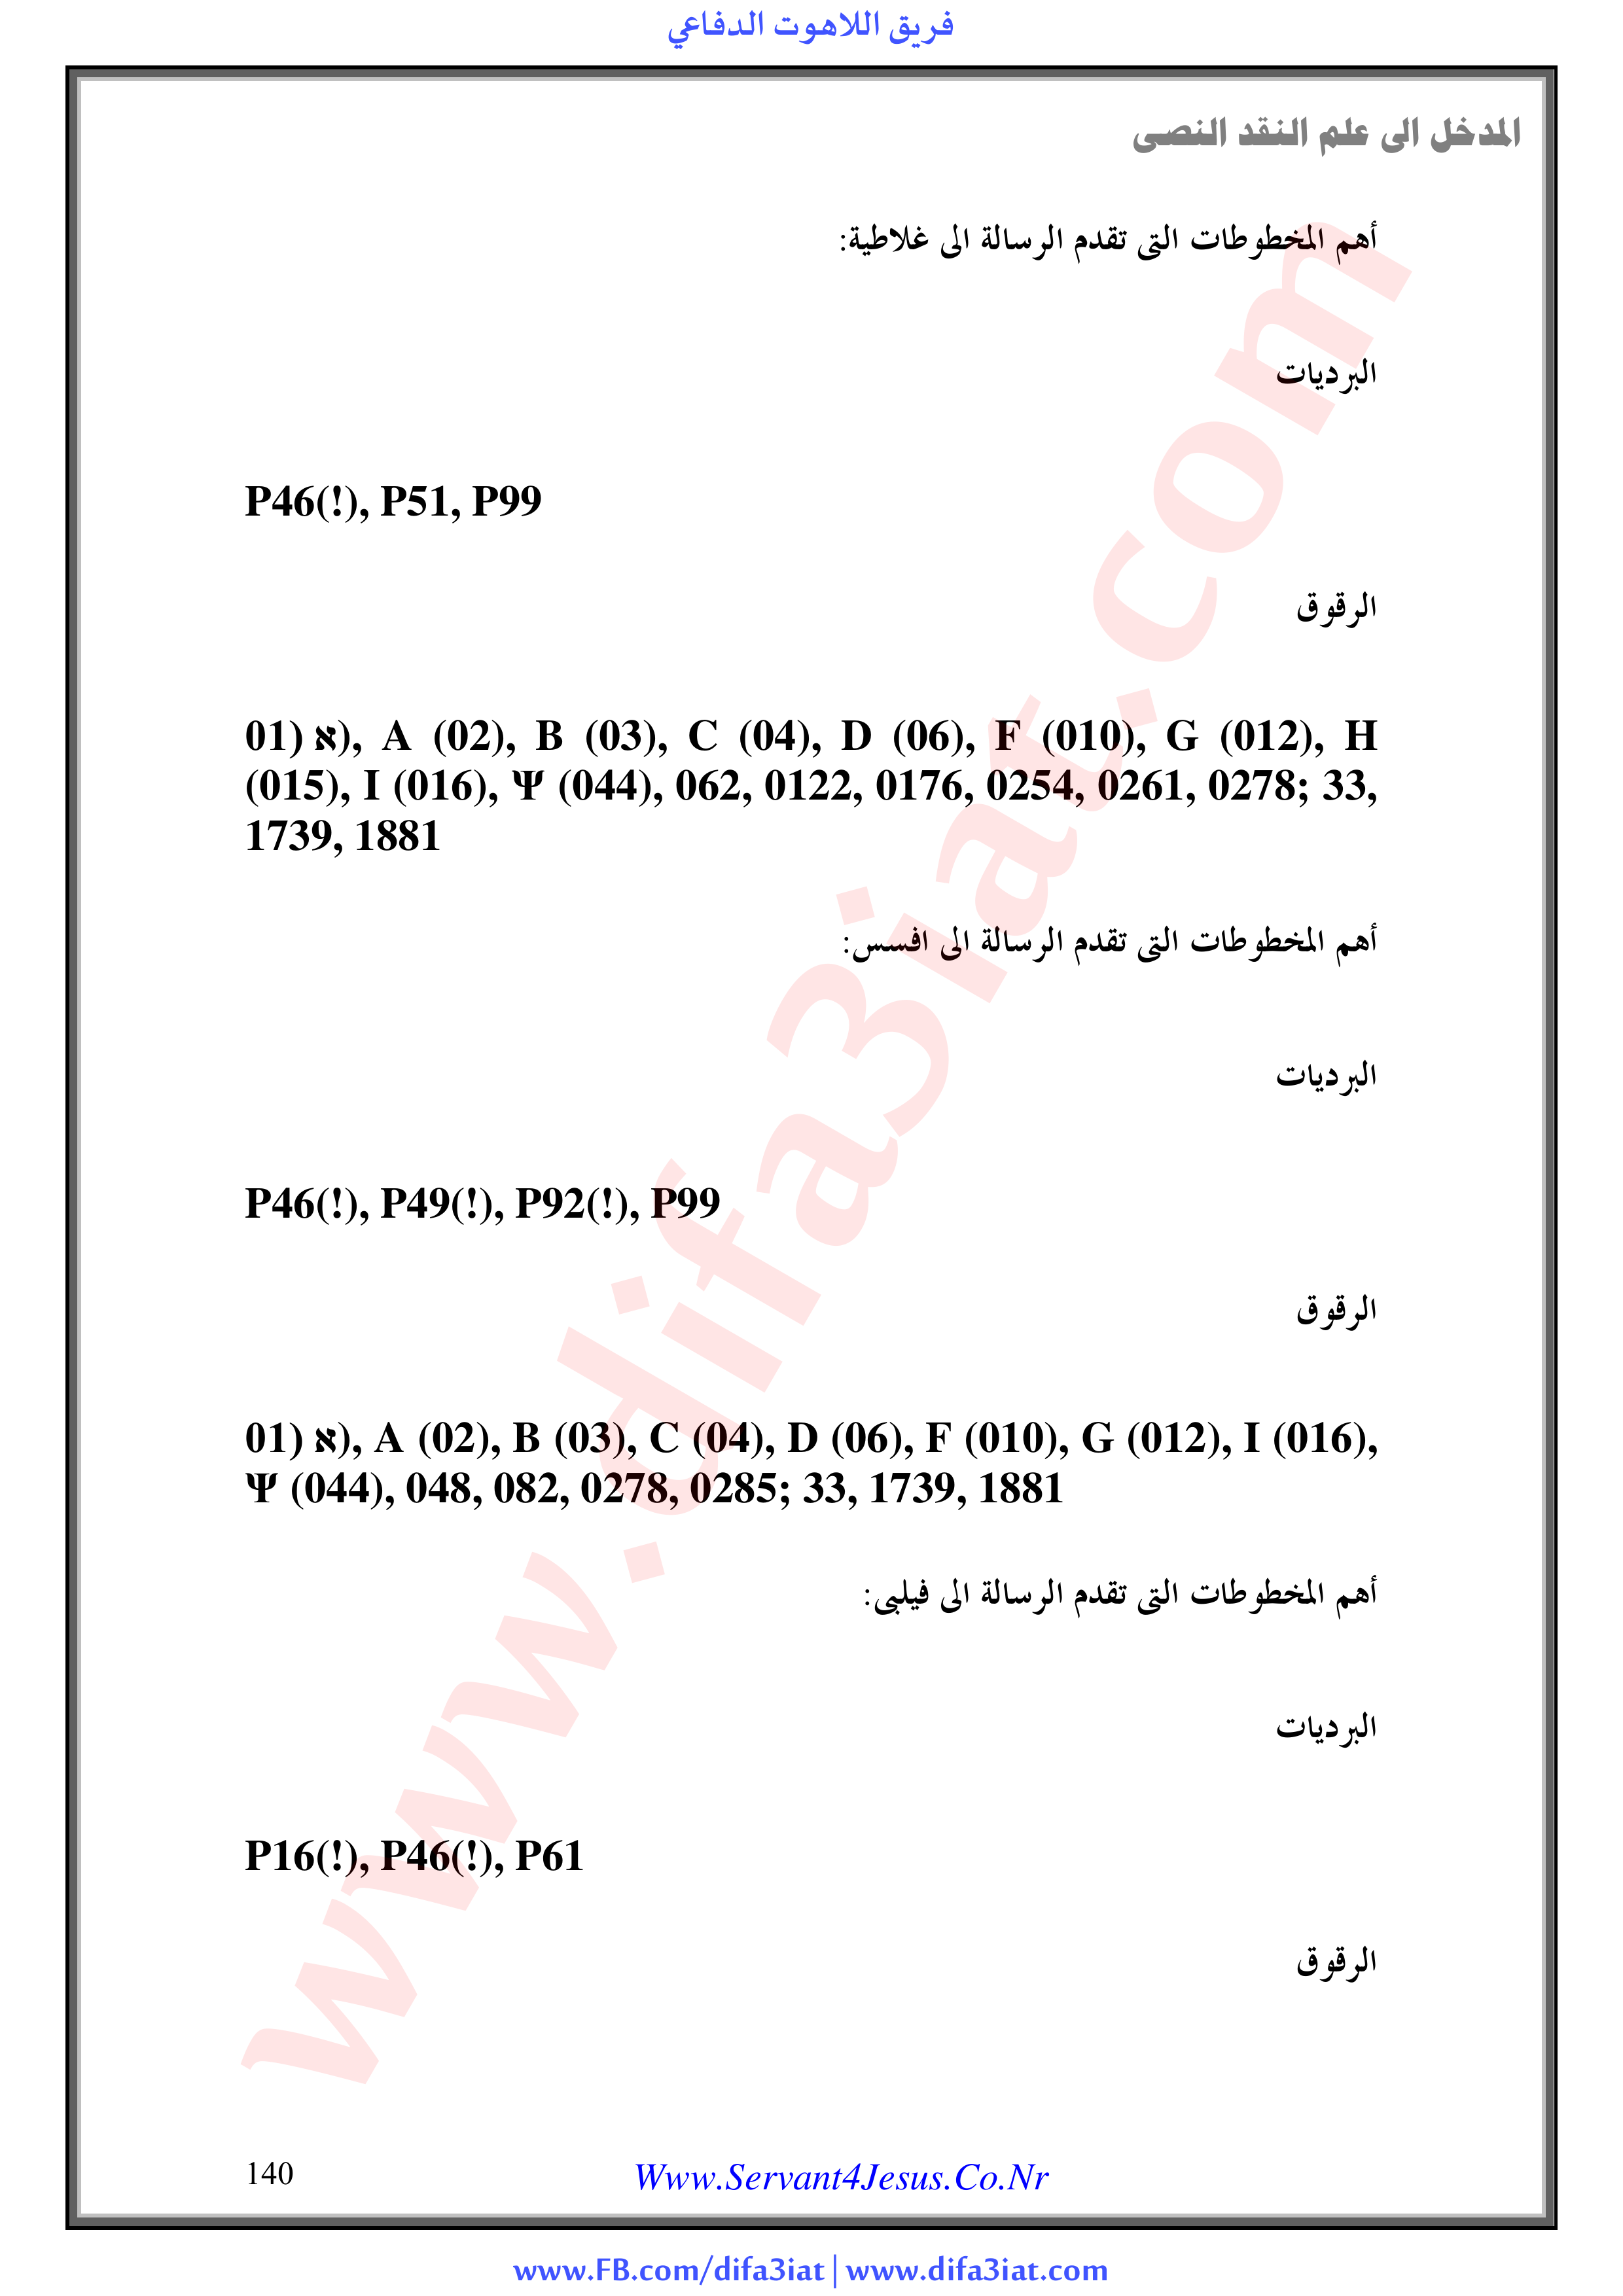 فريق اللاهوت الدفاعي
المدخل الى علم النقد النصى
أهم المخطوطات التى تقدم الرسالة الى غلاطية:
البرديات
P46(!), P51, P99
الرقوق
01) א), A (02), B (03), C (04), D (06), F (010), G (012), H
(015), I (016), Ψ (044), 062, 0122, 0176, 0254, 0261, 0278; 33,
1739, 1881
أهم المخطوطات التى تقدم الرسالة الى افسس:
البرديات
P46(!), P49(!), P92(!), P99
الرقوق
01) א), A (02), B (03), C (04), D (06), F (010), G (012), I (016),
Ψ (044), 048, 082, 0278, 0285; 33, 1739, 1881
أهم المخطوطات التى تقدم الرسالة الى فيلبى:
البرديات
P16(!), P46(!), P61
الرقوق
www.difa3iat.com
140 Www.Servant4Jesus.Co.Nr
www.FB.com/difa3iat | www.difa3iat.com